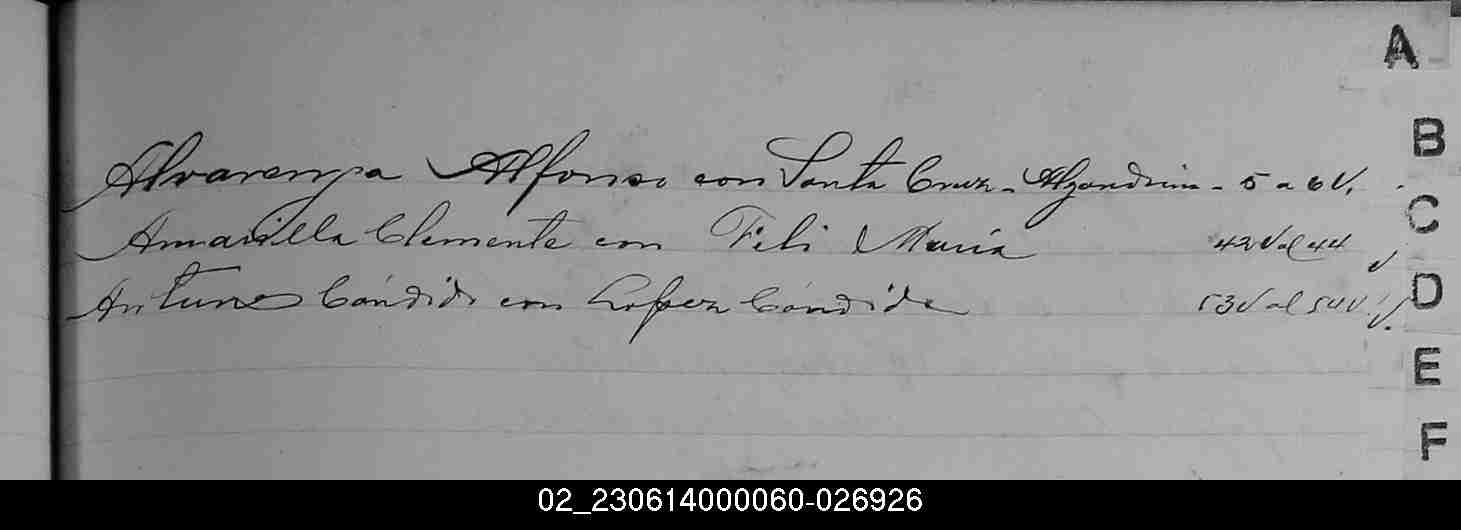 A
Alvarenga Alfonso con Santa Cruz - Alejandrina - 5 a 6 V.
B
C
Amarilla Clemente con Feli María 42 V al 44
D
Antunes Cándido con Lopez Cándida 53 V al 54 V.
E
F
02_230614000060-026926